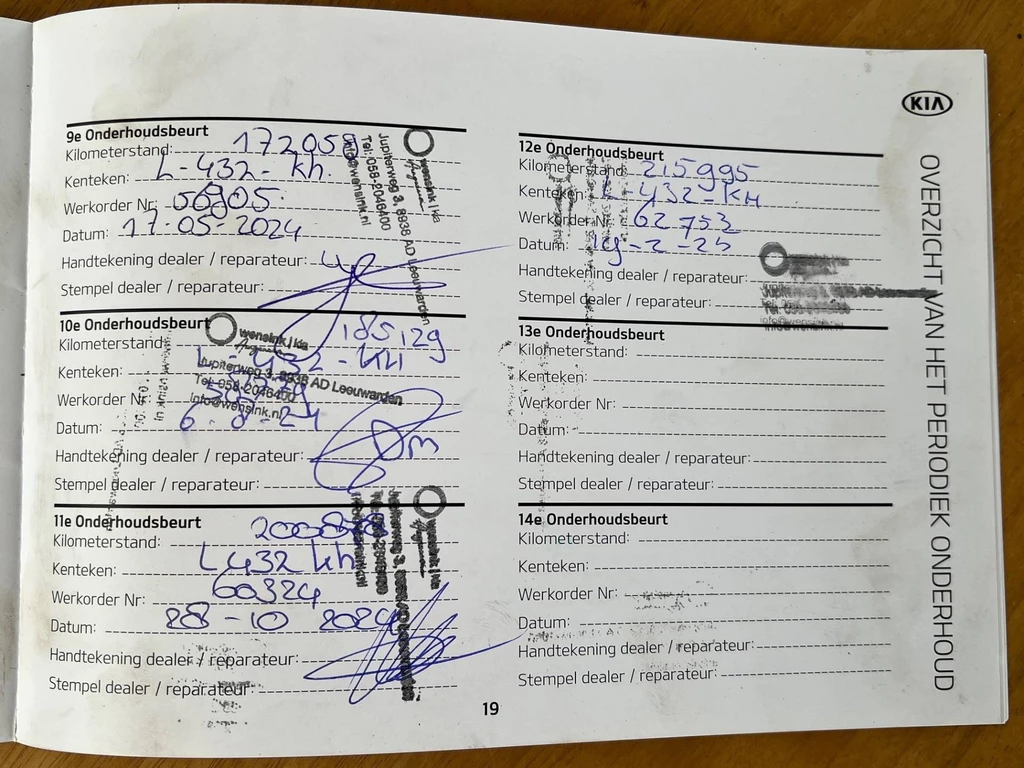 KIA
OVERZICHT VAN HET PERIODIEK ONDERHOUD
9e Onderhoudsbeurt
Kilometerstand: 172059
Kenteken: L-432-kh.
Werkorder Nr: 56905
Datum: 17-05-2024
Handtekening dealer / reparateur:
Stempel dealer / reparateur:
wensink | kia
Jupiterweg 3, 8938 AD Leeuwarden
Tel: 058-2046400
info@wensink.nl
10e Onderhoudsbeurt
Kilometerstand: 185129
Kenteken: L-432-KH
Werkorder Nr:
Datum: 6-8-24
Handtekening dealer / reparateur:
Stempel dealer / reparateur:
wensink | kia
Jupiterweg 3, 8938 AD Leeuwarden
Tel: 058-2046400
info@wensink.nl
11e Onderhoudsbeurt
Kilometerstand:
Kenteken: L432 kh
Werkorder Nr: 60324
Datum: 28-10 2024
Handtekening dealer / reparateur:
Stempel dealer / reparateur:
wensink | kia
12e Onderhoudsbeurt
Kilometerstand: 215995
Kenteken: L-432-KH
Werkorder Nr: 62753
Datum: 19-2-25
Handtekening dealer / reparateur:
Stempel dealer / reparateur:
info@wensink.nl
13e Onderhoudsbeurt
Kilometerstand:
Kenteken:
Werkorder Nr:
Datum:
Handtekening dealer / reparateur:
Stempel dealer / reparateur:
14e Onderhoudsbeurt
Kilometerstand:
Kenteken:
Werkorder Nr:
Datum:
Handtekening dealer / reparateur:
Stempel dealer / reparateur:
19